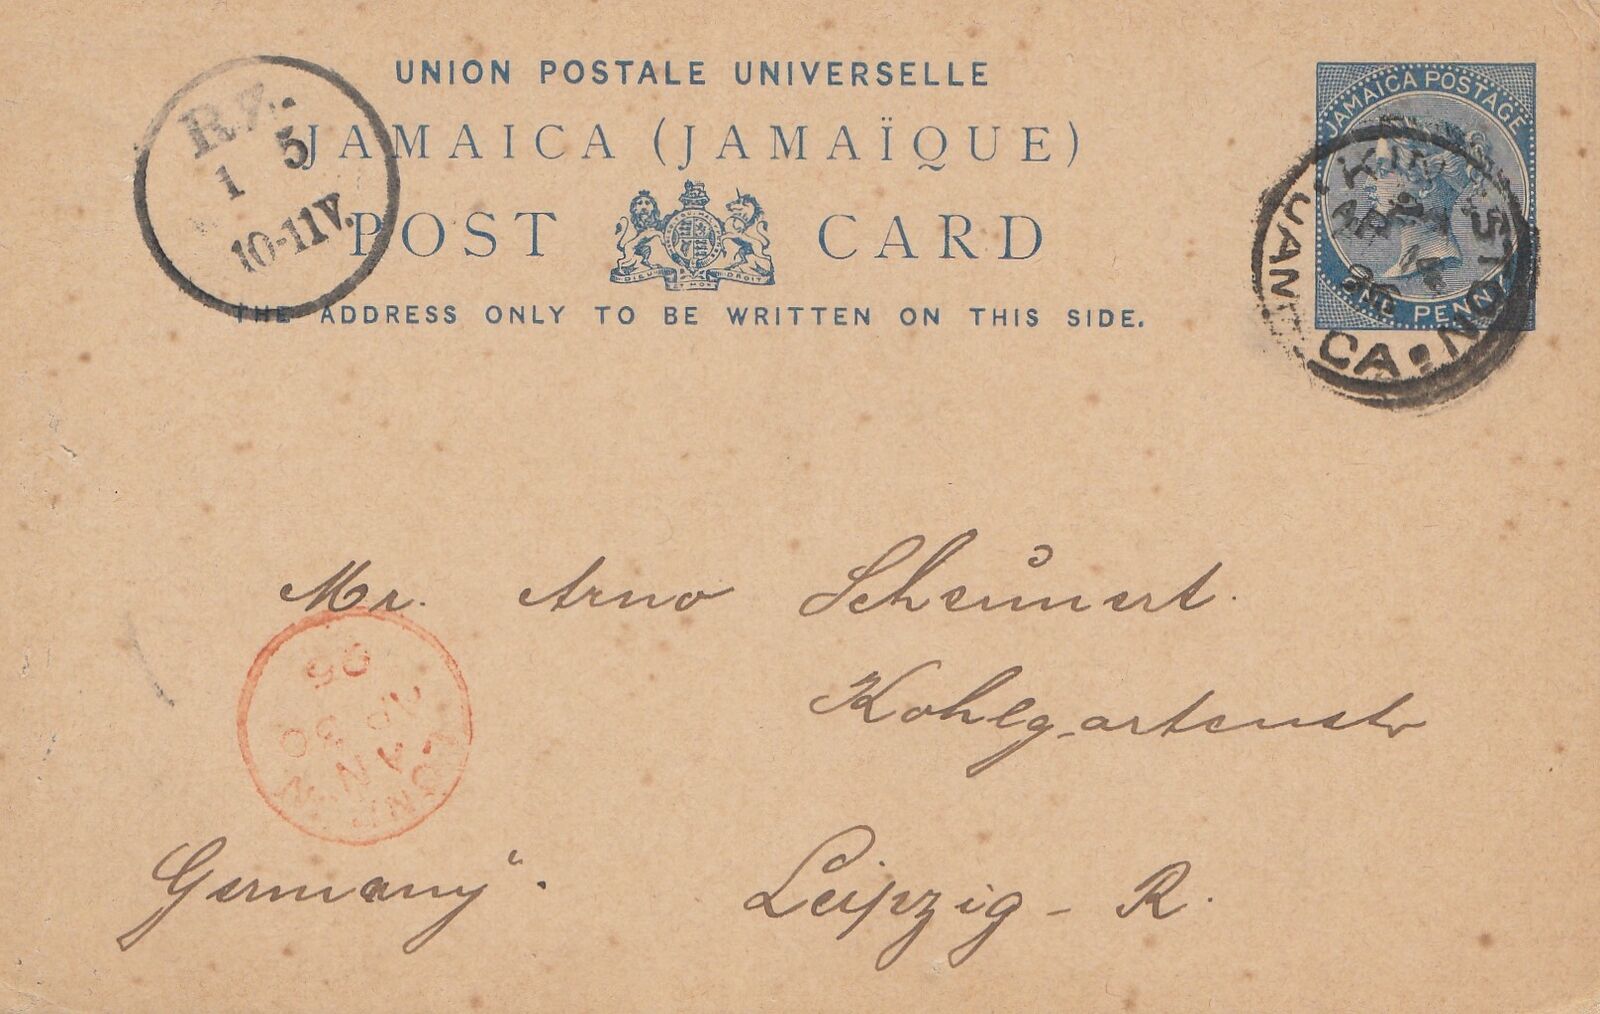 UNION POSTALE UNIVERSELLE
JAMAICA (JAMAÏQUE)
POST CARD
THE ADDRESS ONLY TO BE WRITTEN ON THIS SIDE.
JAMAICA POSTAGE
PENNY
KINGSTON
JAMAICA
AP 14
R.Z.
1 5
10-11V.
DIEU ET MON DROIT
Mr. Arno Scheunert.
Kohlgartenstr
Leipzig - R.
Germany".
LONDON
AP 30